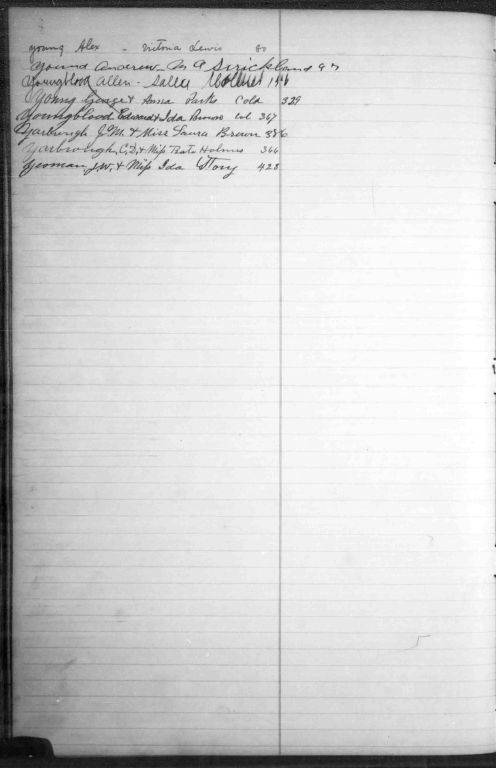 Young Alex - Victoria Lewis 80
Young Andrew - M A Strickland 97
Youngblood Allen - Salla 146
Young George & Anna Parks Cold 329
Youngblood Edward & Ida Col 367
Yarbrough J.M. & Miss Laura Brown 386
Yarbrough, C.D, & Miss Holmes 366
Yeoman, J.W, & Miss Ida Story 428